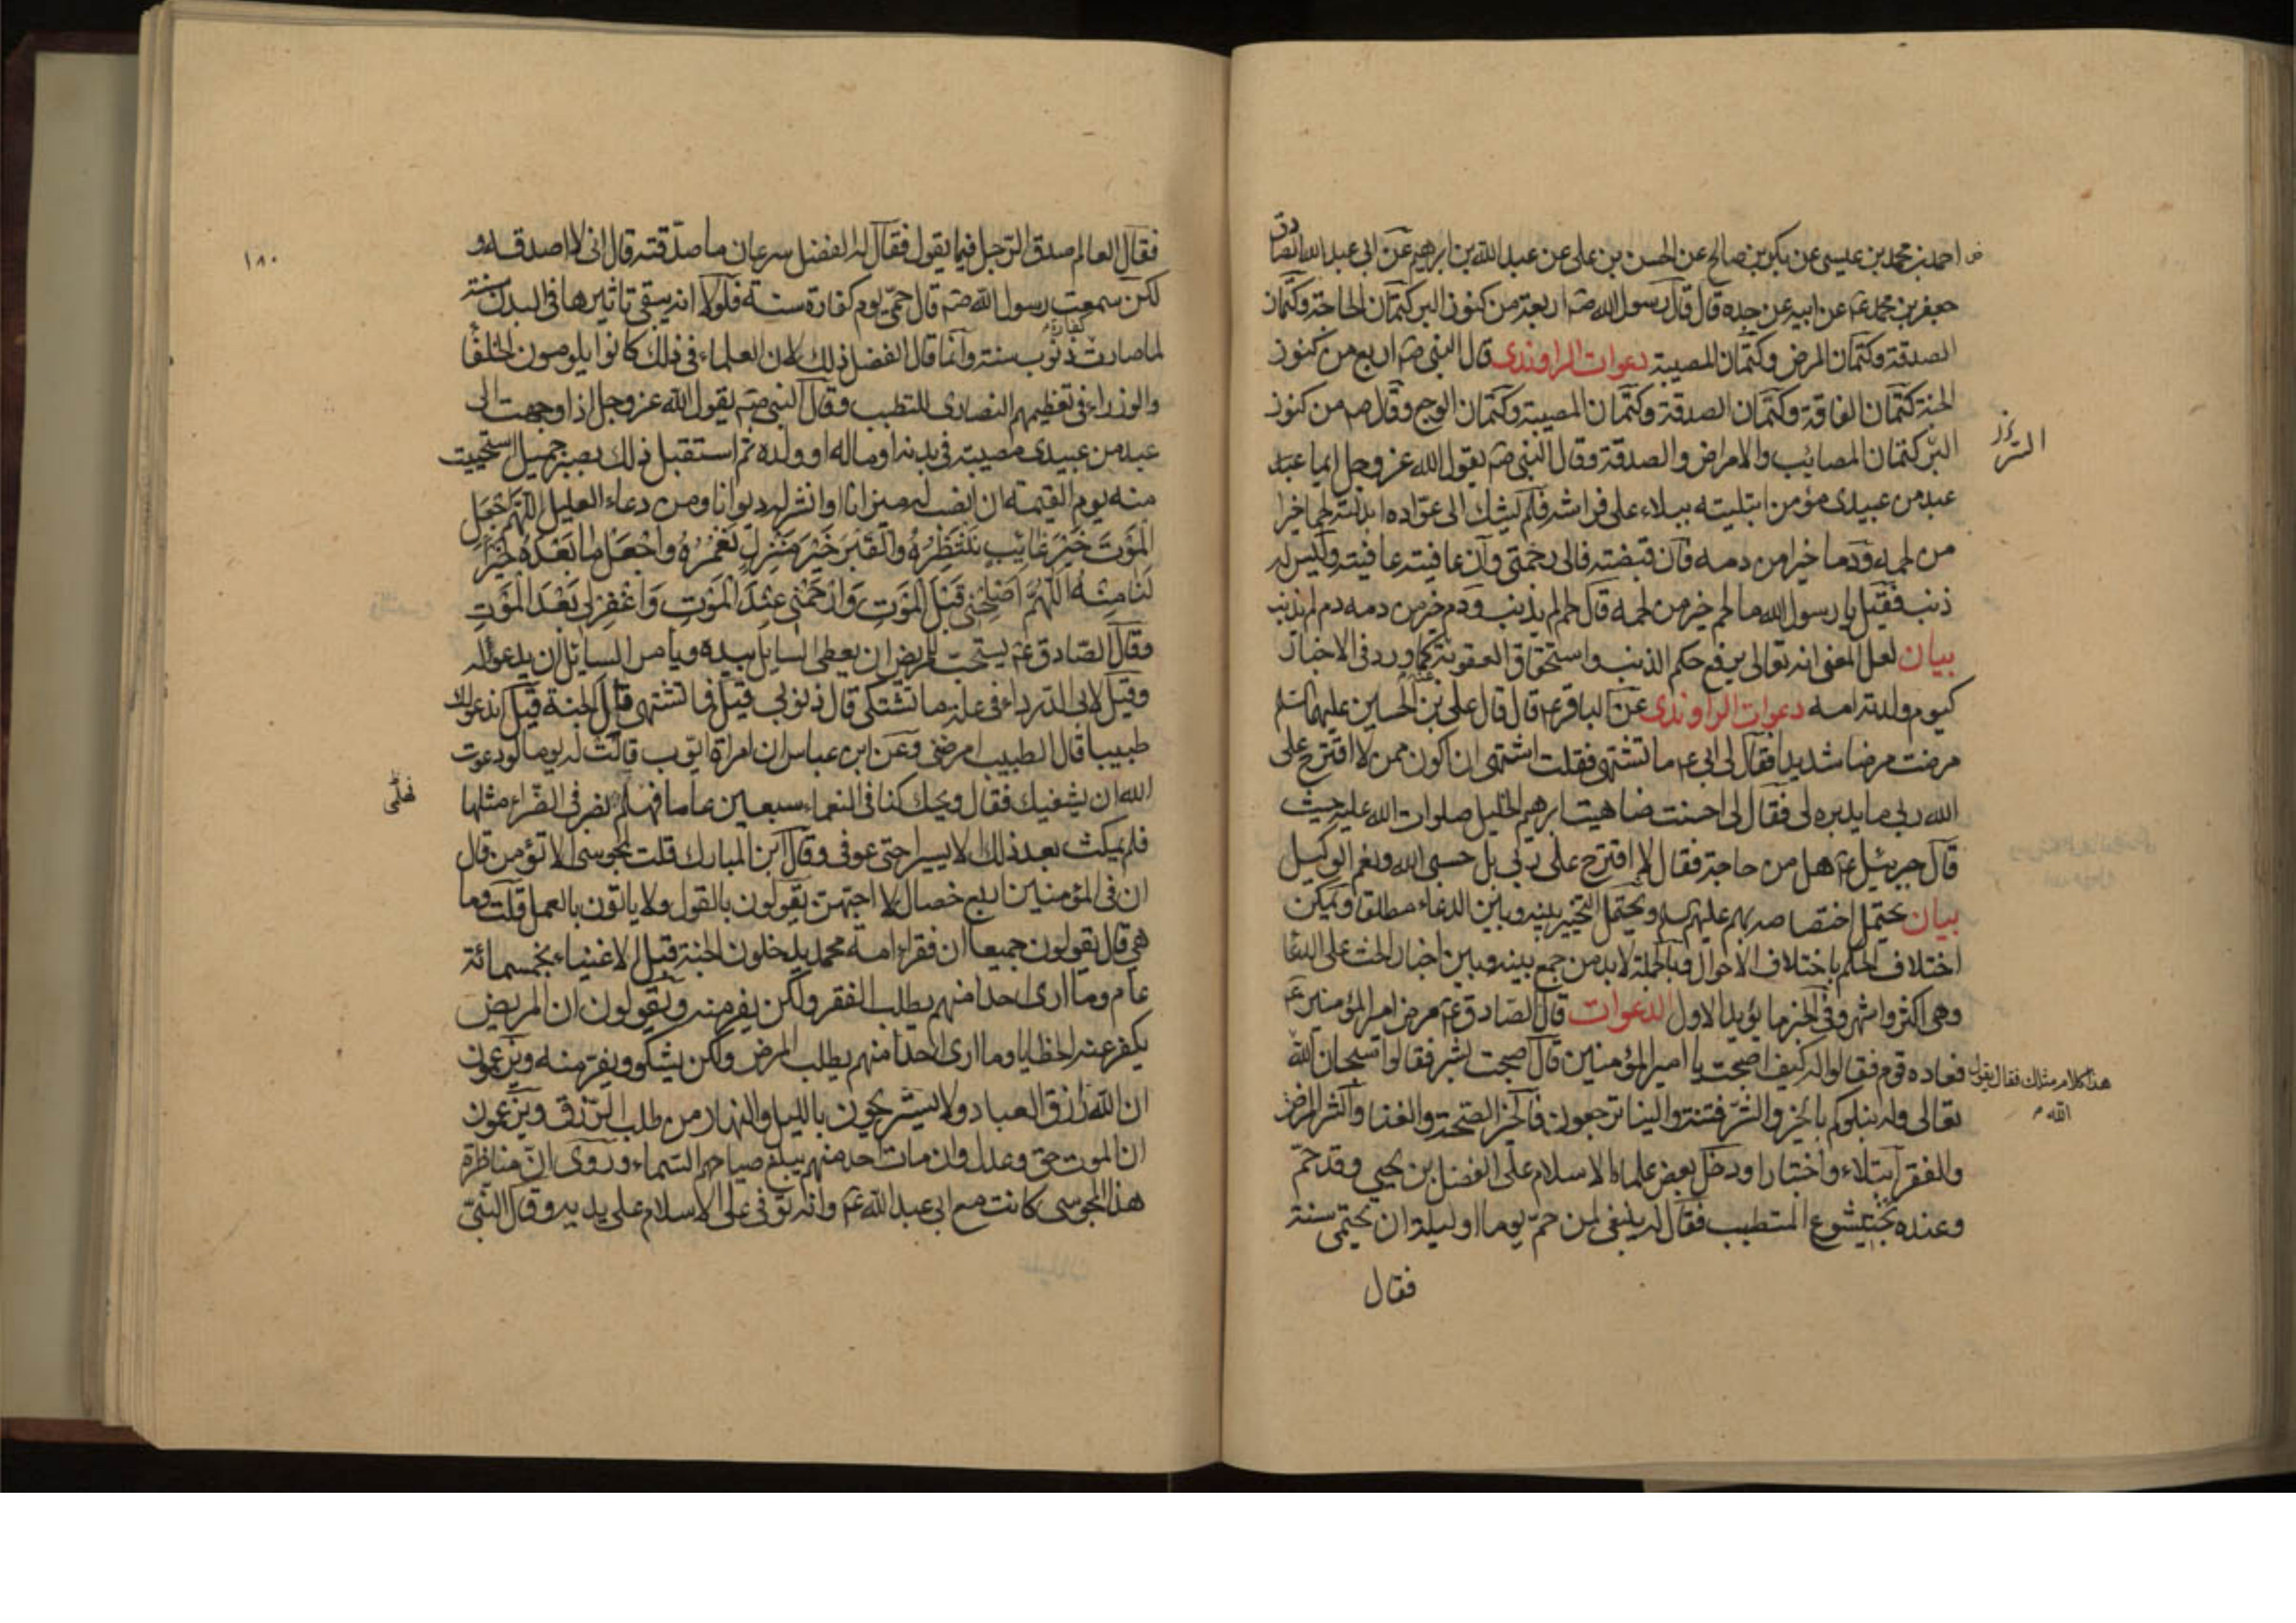 احمد بن محمد بن عيسى عن بكر بن صالح عن الحسن بن على عن عبد الله بن ابرهيم عن ابى عبد الله الصادق
جعفر بن محمد ع عن ابيه عن جده قال قال رسول الله ص اربعة من كنوز البر كتمان الحاجة وكتمان
الصدقة وكتمان المرض وكتمان المصيبة دعوات الراوندى قال النبى ص اربع من كنوز
الجنة كتمان الفاقة وكتمان الصدقة وكتمان المصيبة وكتمان الوجع وقال ص من كنوز
البر كتمان المصائب والامراض والصدقة وقال النبى ص يقول الله عز وجل ايما عبد
عبد من عبيدى مؤمن ابتليته ببلاء على فراشه فلم يشك الى عواده ابدلته لحما خيرا
من لحمه ودما خيرا من دمه فان قبضته فالى رحمتى وان عافيته عافيته وليس له
ذنب فقيل يا رسول الله ما لحم خير من لحمه قال لحم لم يذنب ودم خير من دمه دم لم يذنب
بيان لعل المعنى انه تعالى يرفع حكم الذنب واستحقاق العقوبة كما ورد فى الاخبار
كيوم ولدته امه دعوات الراوندى عن الباقر ع قال قال على بن الحسين عليهما السلم
مرضت مرضا شديدا فقال لى ابى ع ما تشتهى فقلت اشتهى ان اكون ممن لا اقترح على
الله ربى ما يدبره لى فقال لى احسنت ضاهيت ابرهيم الخليل صلوات الله عليه حيث
قال جبرئيل ع هل من حاجة فقال لا اقترح على ربى بل حسبى الله ونعم الوكيل
بيان يحتمل اختصاصه بهم عليهم السلم ويحتمل التخيير بينه وبين الدعاء مطلقا ويمكن
اختلاف الحكم باختلاف الاحوال وبالجملة لابد من جمع بينه وبين اخبار الحث على الدعا
وهى اكثر واشهر وفى الخبر ما يؤيد الاول الدعوات قال الصادق ع مرض امير المؤمنين ع
فعاده قوم فقالوا له كيف اصبحت يا امير المؤمنين قال اصبحت بشر فقالوا سبحان الله
هذا كلام مثلك فقال يقول
الله
تعالى ولنبلوكم بالخير والشر فتنة والينا ترجعون فالخير الصحة والغنا والشر المرض
والفقر ابتلاء واختبارا ودخل بعض علماء الاسلام على الفضل بن يحيى وقد حم
وعنده بختيشوع المتطبب فقال له ينبغى لمن حم يوما او ليلة ان يحتمى سنة
فقال
١٨٠
فقال العالم صدق الرجل فيما يقول فقال له الفضل سرعان ما صدقته قال انى لا اصدقه و
لكن سمعت رسول الله ص قال حمى يوم كفارة سنة فلولا انه يبقى تاثيرها فى البدن سنة
لما صارت كفارة ذنوب سنة وانما قال الفضل ذلك لان العلماء فى ذلك كانوا يلومون الخلفا
والوزراء فى تعظيمهم النصارى للتطبب وقال النبى ص يقول الله عز وجل اذا وجهت الى
عبد من عبيدى مصيبة فى بدنه او ماله او ولده ثم استقبل ذلك بصبر جميل استحييت
منه يوم القيمة ان انصب له ميزانا او انشر له ديوانا ومن دعاء العليل اللهم اجعل
الموت خير غائب ننتظره والقبر خير منزل نعمره واجعل ما بعده خيرا
لنا منه اللهم اصلحنى قبل الموت وارحمنى عند الموت واغفر لى بعد الموت
وقال الصادق ع يستحب للمريض ان يعطى السايل بيده ويأمر السايل ان يدعو له
وقيل لابى الدرداء فى علة ما تشتكى قال ذنوبى قيل فما تشتهى قال الجنة قيل اندعو لك
طبيبا قال الطبيب امرضنى وعن ابن عباس ان امراة ايوب قالت له يوما لو دعوت
الله ان يشفيك فقال ويحك كنا فى النعماء سبعين عاما فهلم نصبر فى الضراء مثلها
فلم يمكث بعد ذلك الا يسيرا حتى عوفى وقال ابن المبارك قلت لمجوسى الا تؤمن قال
ان فى المؤمنين اربع خصال لا احبهن يقولون بالقول ولا ياتون بالعمل قلت وما
هى قال يقولون جميعا ان فقراء امة محمد يدخلون الجنة قبل الاغنياء بخمسمائة
عام وما ارى احدا منهم يطلب الفقر ولكن يفر منه ويقولون ان المريض
يكفر عنه الخطايا وما ارى احدا منهم يطلب المرض ولكن يشكو ويفر منه ويزعمون
ان الله رازق العباد ولا يستريحون بالليل والنهار من طلب الرزق ويزعمون
ان الموت حق وعدل وان مات احد منهم يبلغ صياحهم السماء وروى ان مناظرة
هذا المجوسى كانت مع ابى عبد الله ع وانه توفى على الاسلام على يديه وقال النبى